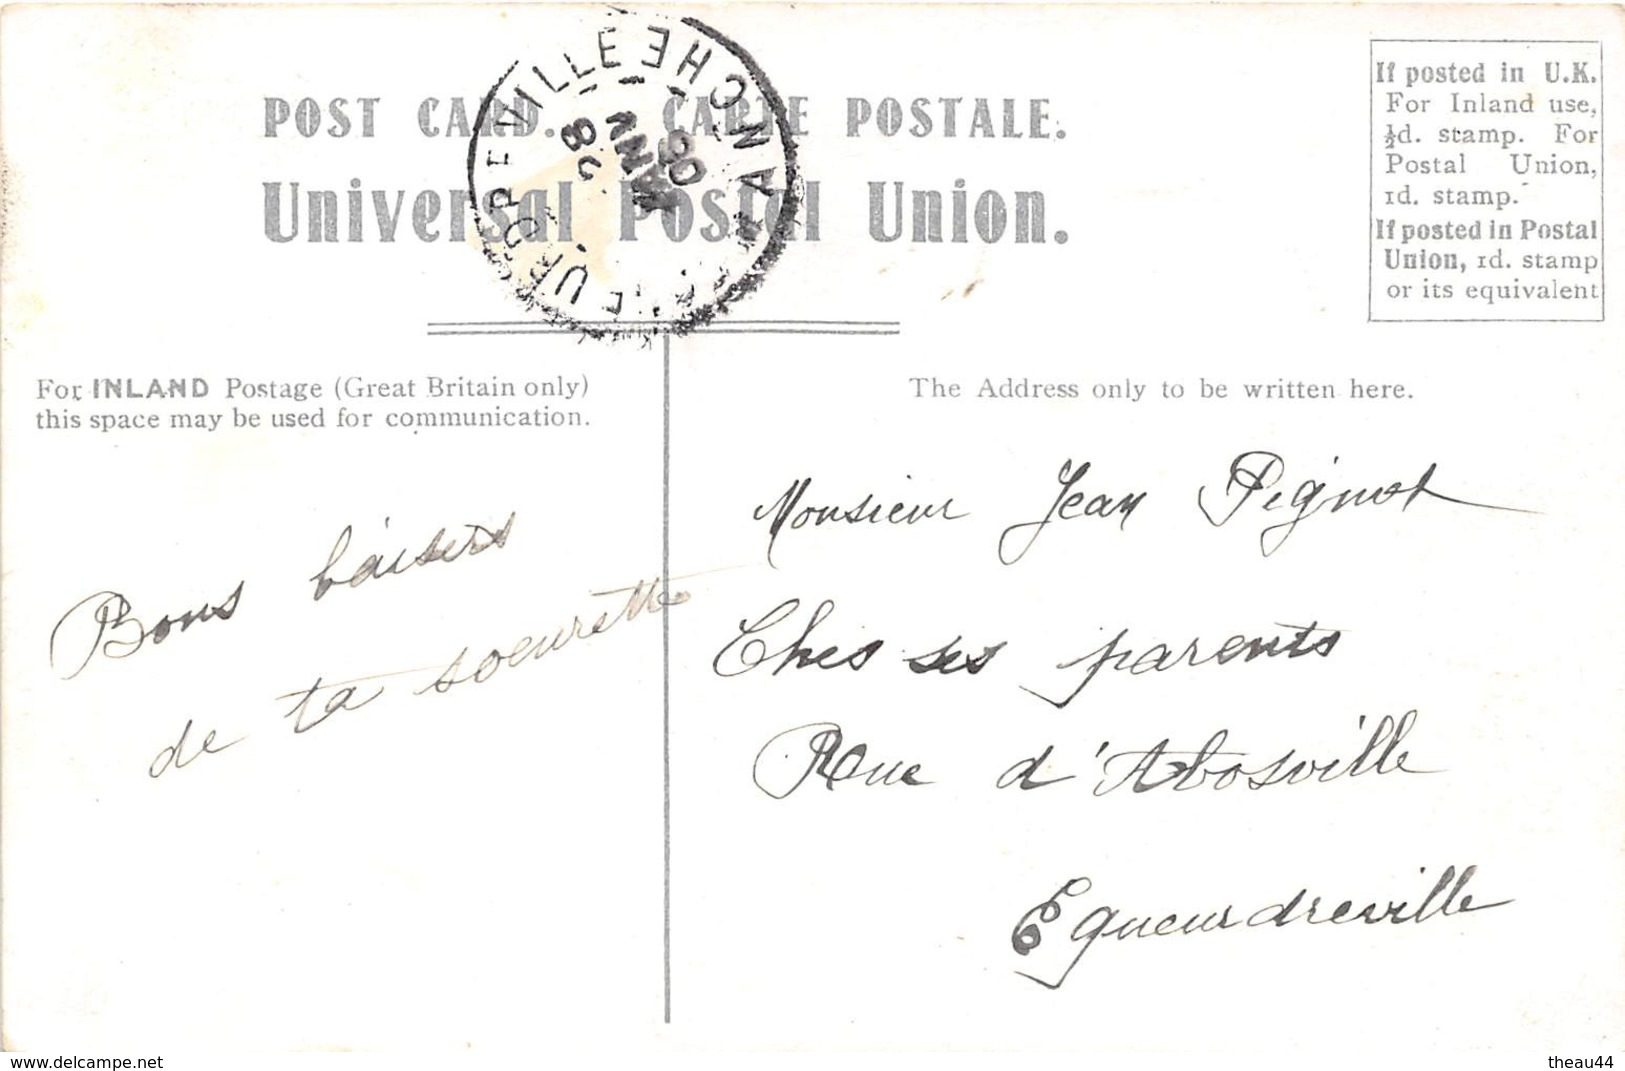 POST CARD. CARTE POSTALE.
Universal Postal Union.
If posted in U.K.
For Inland use,
½d. stamp. For
Postal Union,
1d. stamp.
If posted in Postal
Union, 1d. stamp
or its equivalent
MANCHE
28
JANV
09
For INLAND Postage (Great Britain only)
this space may be used for communication.
The Address only to be written here.
Bons baisers
de ta soeurette
Monsieur Jean Pignot
Ches ses parents
Rue d'Abosville
Equeurdreville
www.delcampe.net
theau44